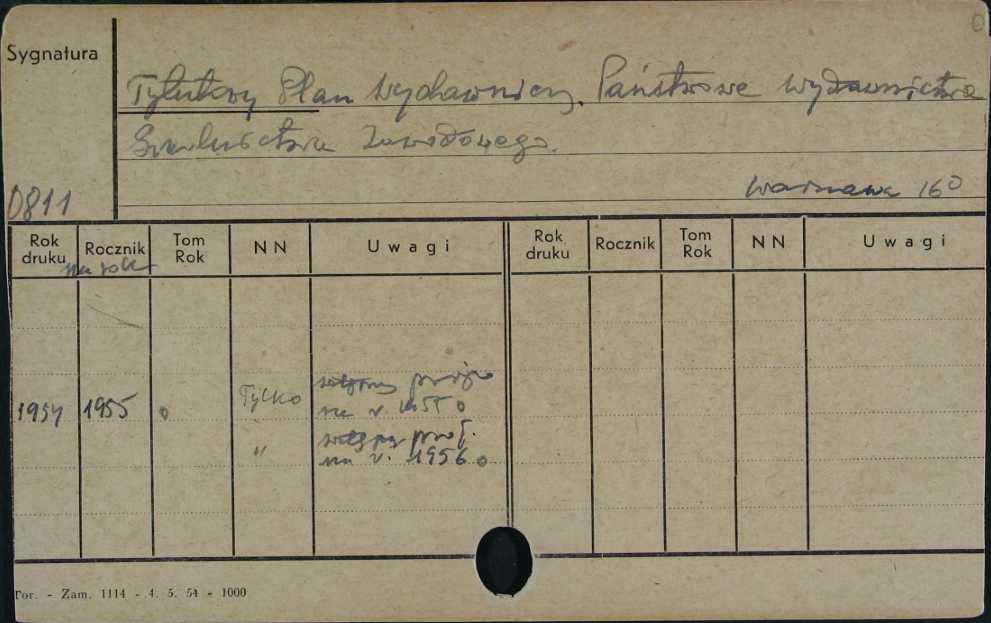 Sygnatura
Tytułowy Plan Wydawniczy. Państwowe Wydawnictwa
Szkolnictwa Zawodowego.
D811
Warszawa 16°
Rok druku Rocznik Tom Rok NN Uwagi Rok druku Rocznik Tom Rok NN Uwagi
na rok
wstępny proj.
1954 1955 0 Tylko na r. 1955 0
" wstępny proj.
na r. 1956 0
Tor. - Zam. 1114 - 4. 5. 54 - 1000